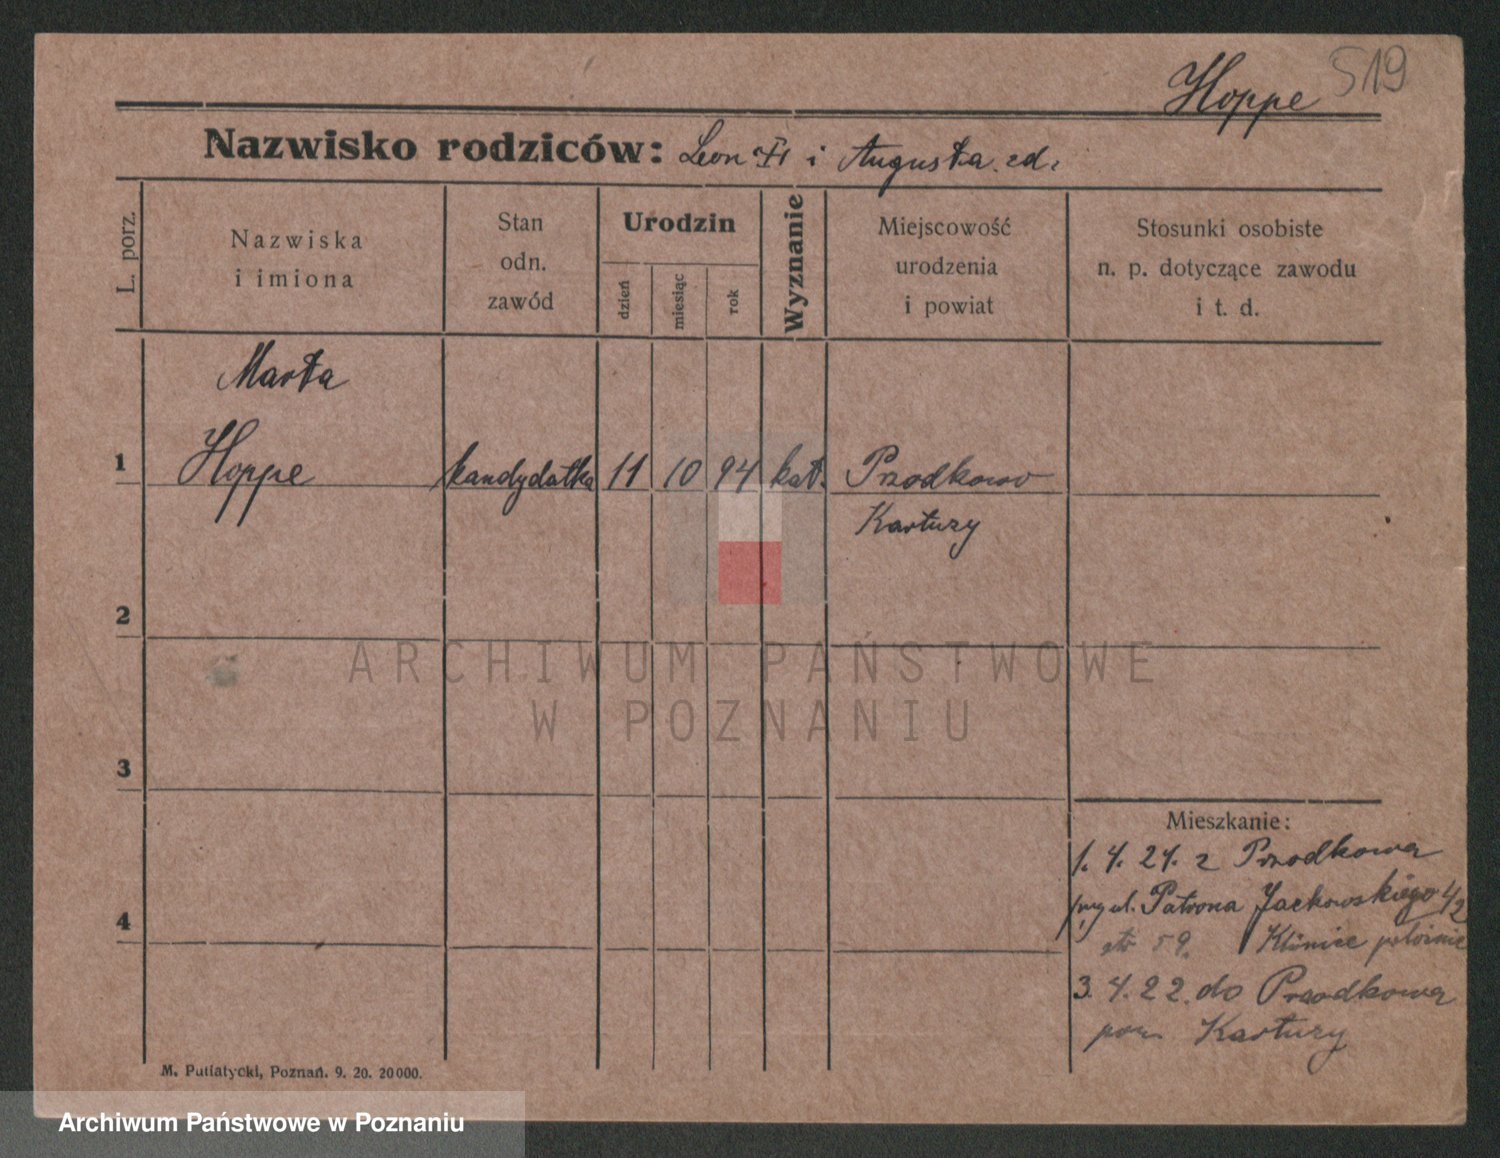 Hoppe 519
Nazwisko rodziców: Leon i Augusta
L. porz.
Nazwiska i imiona
Stan odn. zawód
Urodzin
dzień
miesiąc
rok
Wyznanie
Miejscowość urodzenia i powiat
Stosunki osobiste n. p. dotyczące zawodu i t. d.
Marta
1 Hoppe kandydatka 11 10 94 kat. Przodkowo
Kartuzy
2
3
4
ARCHIWUM PAŃSTWOWE
W POZNANIU
Mieszkanie:
1. 4. 21. z Przodkowa
ul. Patrona Jackowskiego 42
Klinice
3. 4. 22. do Przodkowa
pow. Kartuzy
M. Putiatycki, Poznań. 9. 20. 20000.
Archiwum Państwowe w Poznaniu